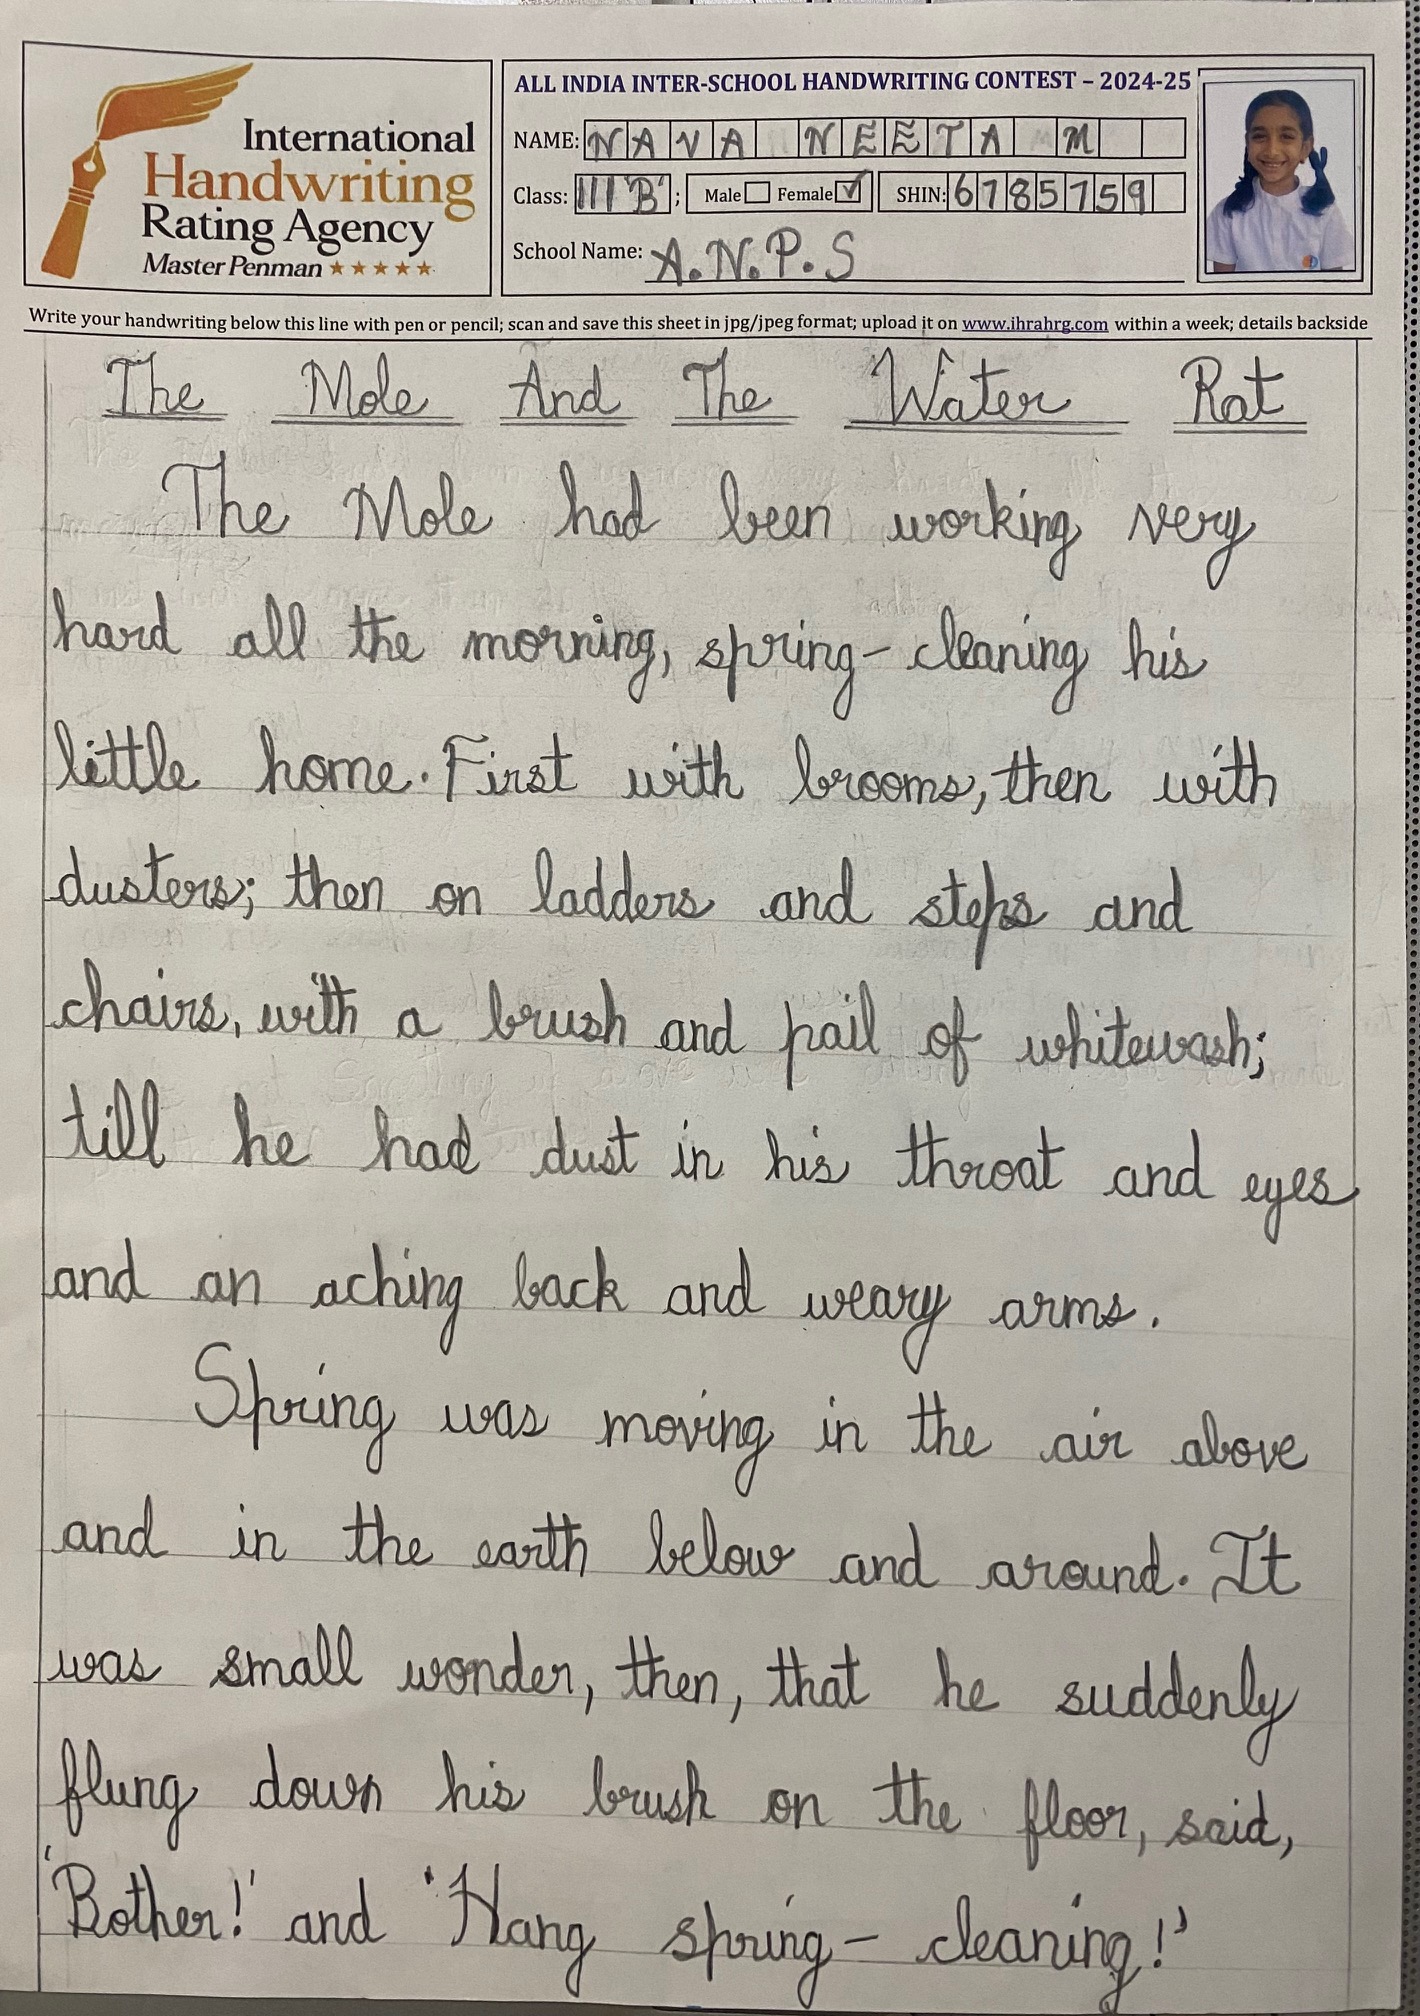 International
Handwriting
Rating Agency
Master Penman
ALL INDIA INTER-SCHOOL HANDWRITING CONTEST – 2024-25
NAME: NAVA NEETA M
Class: III 'B' ; Male Female SHIN: 6785759
School Name: A.N.P.S
Write your handwriting below this line with pen or pencil; scan and save this sheet in jpg/jpeg format; upload it on www.ihrahrg.com within a week; details backside
The Mole And The Water Rat
The Mole had been working very
hard all the morning, spring-cleaning his
little home. First with brooms, then with
dusters; then on ladders and steps and
chairs, with a brush and pail of whitewash;
till he had dust in his throat and eyes
and an aching back and weary arms.
Spring was moving in the air above
and in the earth below and around. It
was small wonder, then, that he suddenly
flung down his brush on the floor, said,
'Bother!' and 'Hang spring-cleaning!'